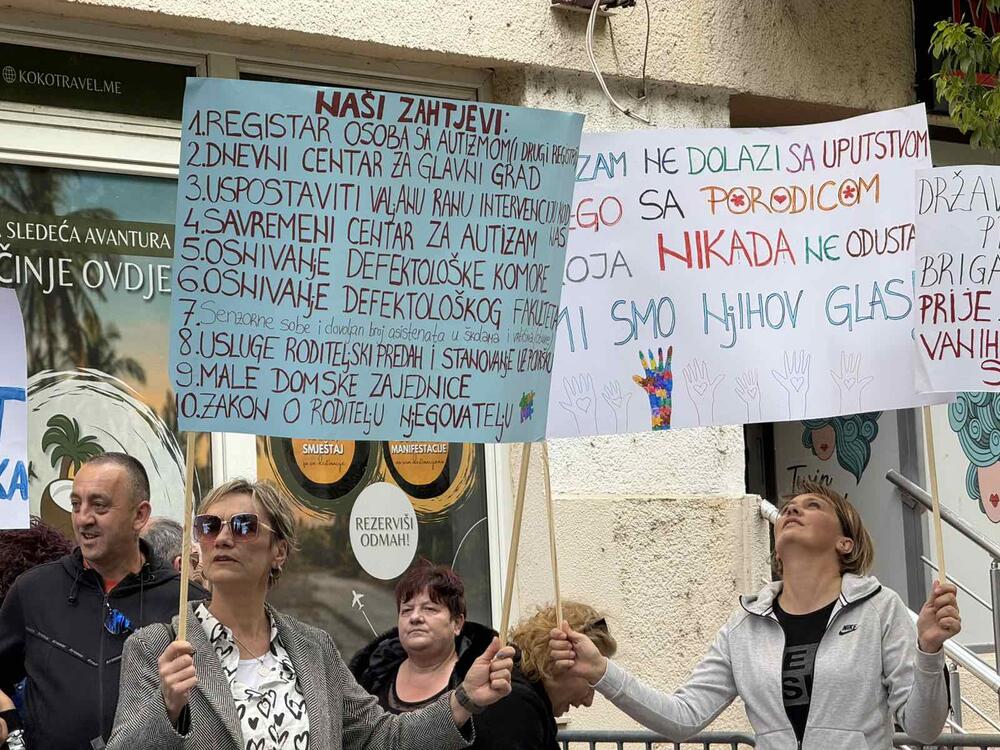 KOKOTRAVEL.ME
SLEDEĆA AVANTURA
ČINJE OVDJE
NAŠI ZAHTJEVI:
1.REGISTAR OSOBA SA AUTIZMOM (I DRUGI REGISTRI
2.DNEVNI CENTAR ZA GLAVNI GRAD
3.USPOSTAVITI VALJANU RANU INTERVENCIJU KOD
NAS
4.SAVREMENI CENTAR ZA AUTIZAM
5.OSNIVANJE DEFEKTOLOŠKE KOMORE
6.OSNIVANJE DEFEKTOLOŠKOG FAKULTETA
7.Senzorne sobe i dovoljan broj asistenata u školama i
8.USLUGE RODITELJSKI PREDAH I STANOVANJE UZ PODRŠKU
9.MALE DOMSKE ZAJEDNICE
10.ZAKON O RODITELJU NJEGOVATELJU
ZAM NE DOLAZI SA UPUTSTVOM
EGO SA PORODICOM
KOJA NIKADA NE ODUSTA
MI SMO NJIHOV GLAS
DRŽAV
P
BRIGA
PRIJE
VANIH
S
KA
SMJEŠTAJ
MANIFESTACIJE
REZERVIŠI
ODMAH!
Twin
NIKE